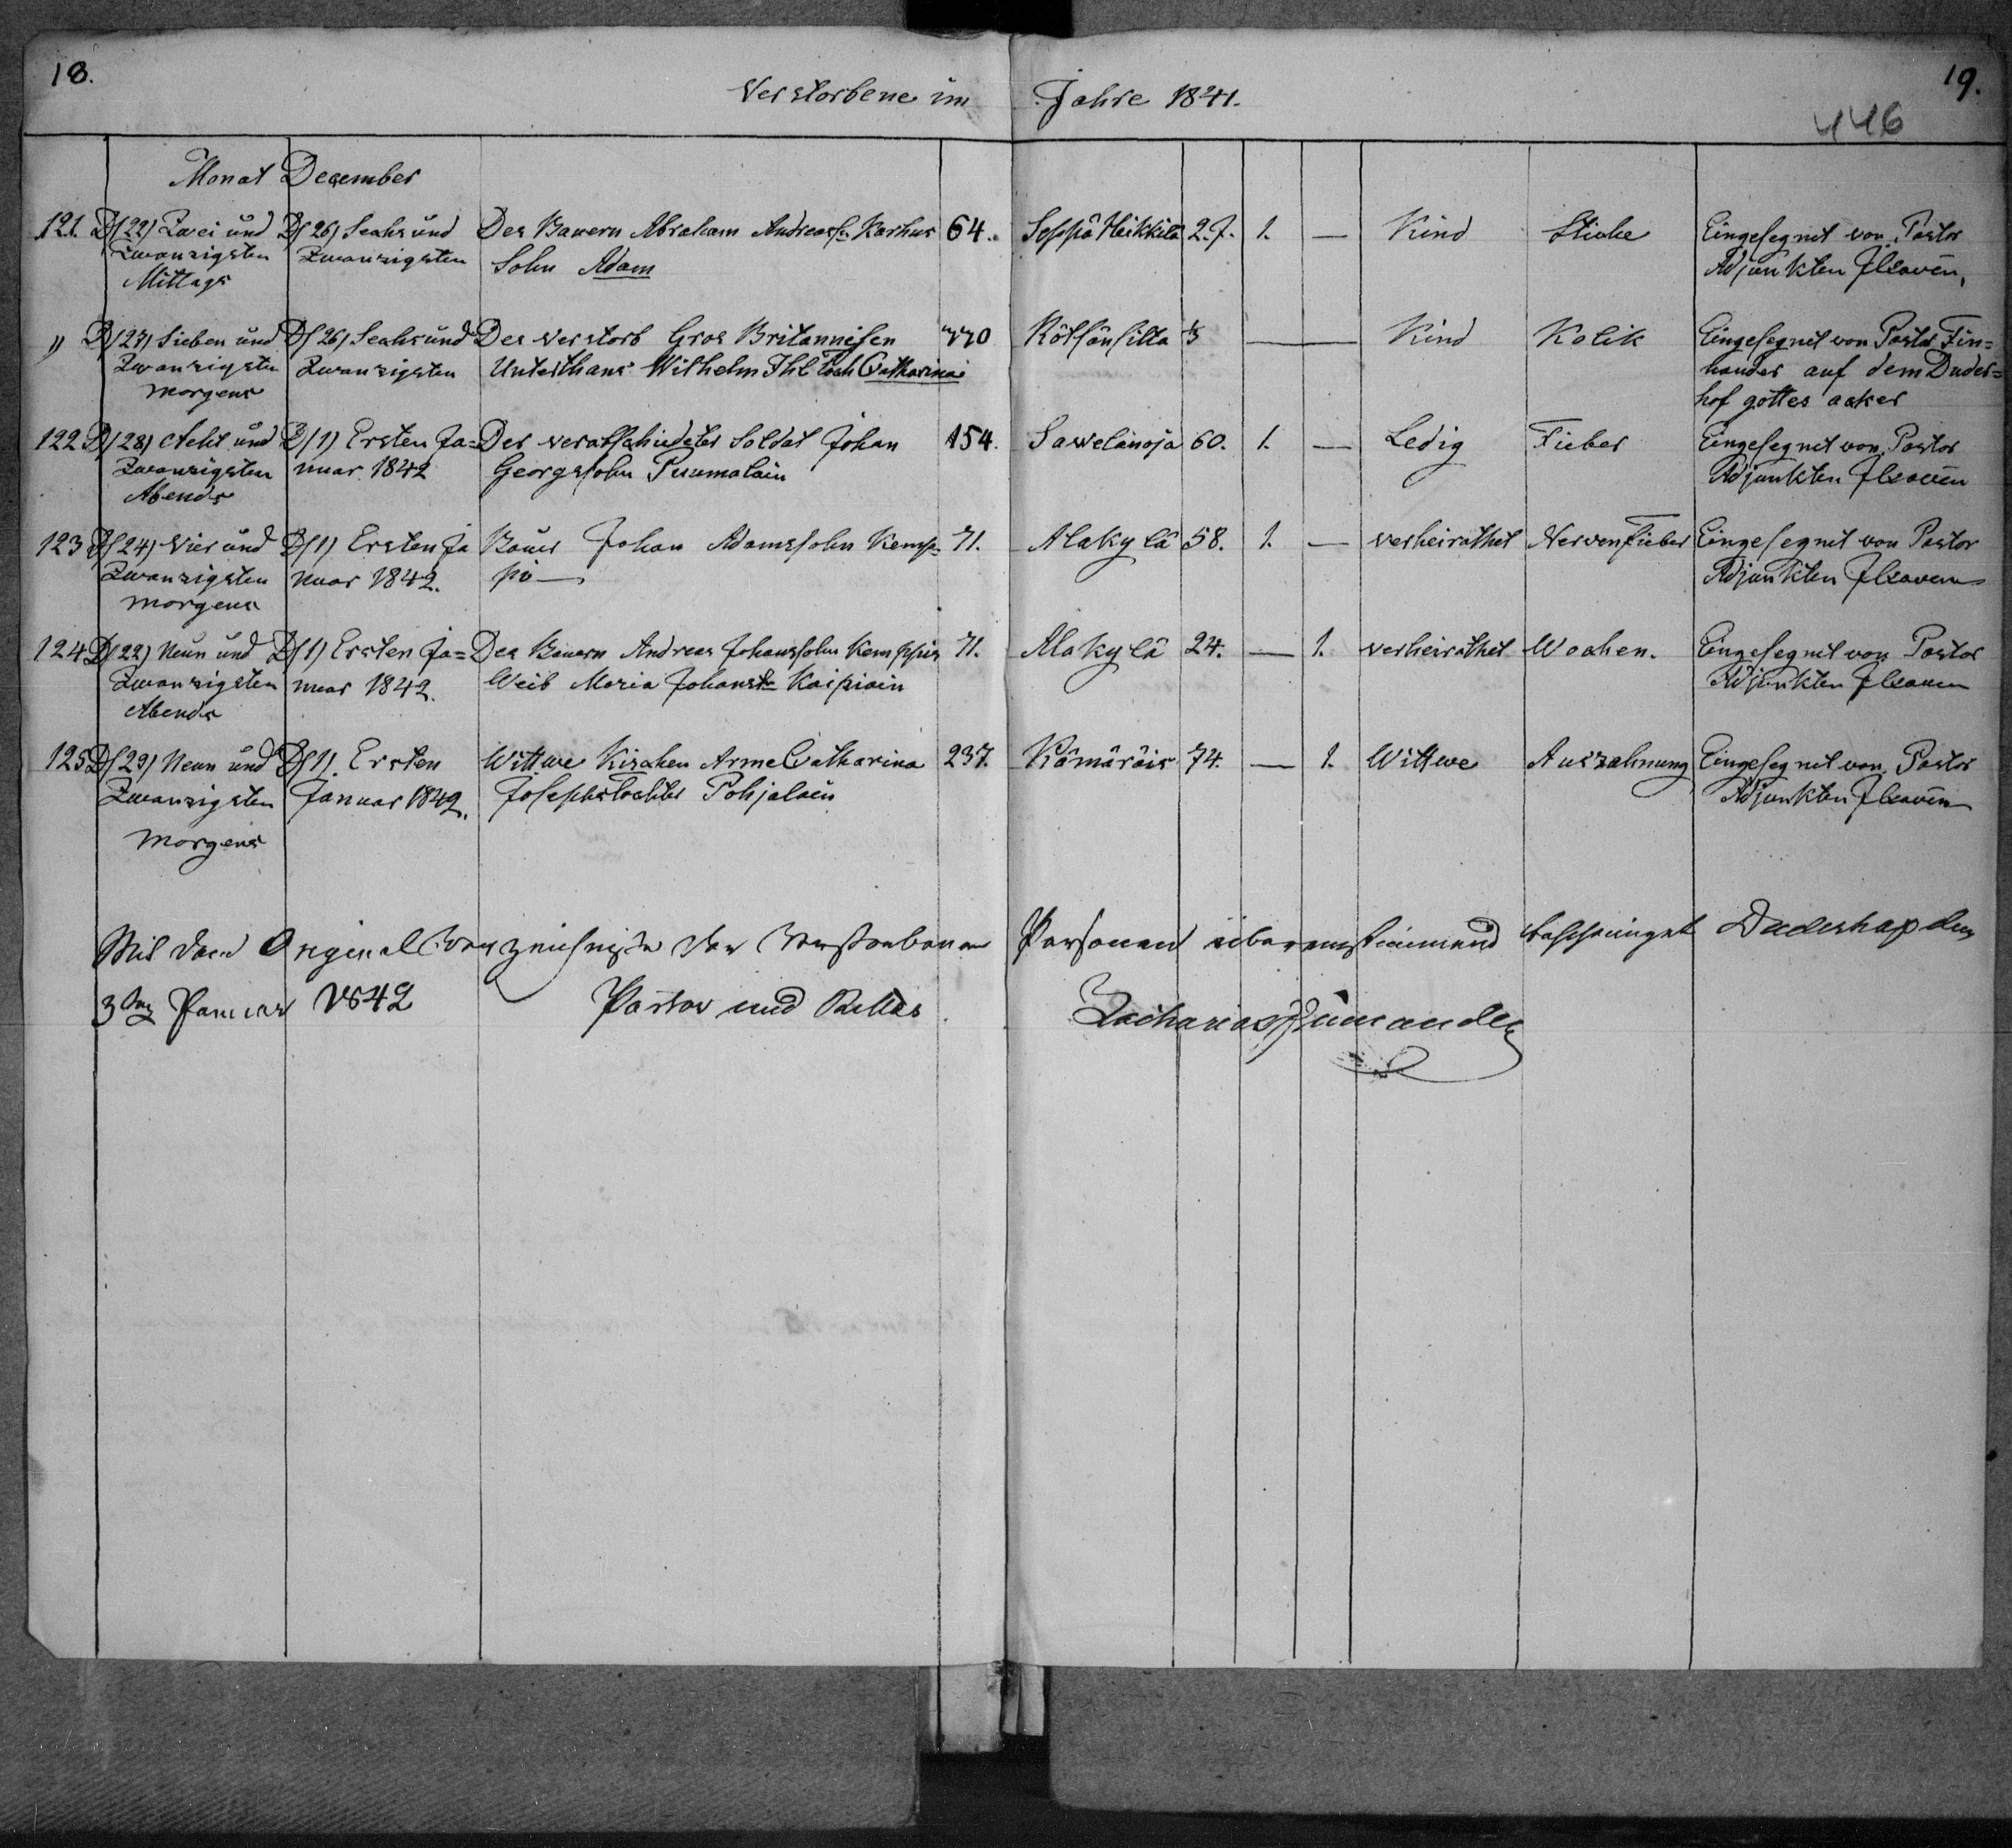 18.
19.
Verstorbene im Jahre 1841.
446
Monat December
121. D/22/ Zwei und D/26/ Sechs und Des Bauern Abraham Andreass. Karhus 64. Seppä Heikkilä 2.J. 1. — Kind Stiche Eingesegnet von Pastor
Zwanzigsten Zwanzigsten Sohn Adam Adjunkten
Mittags
" D/27/ Sieben und D/26/ Sechs und Des verstorb Gros Britannisen 770 Kötsänsilta 1/3 — Kind Kolik Eingesegnet von Pastor Fin=
Zwanzigsten Zwanzigsten Unterthans Wilhelm Toch Catharina hander auf dem Duder=
morgens hof gottes acker
122 D/28/ Acht und D/1/ Ersten Ja= Der verabschiedeter Soldat Johan 154. Sawelänoja 60. 1. — Ledig Fieber Eingesegnet von Pastor
Zwanzigsten nuar 1842 Georgssohn Puumalain Adjunkten
Abends
123 D/24/ Vier und D/1/ Ersten Ja Bauer Johan Adamssohn Kemp= 71. Alakylä 58. 1. — verheirathet Nervenfieber Eingesegnet von Pastor
Zwanzigsten nuar 1842. pi — Adjunkten
morgens
124 D/22/ Neun und D/1/ Ersten Ja= Des Bauern Andreas Johanssohn Kemppis 71. Alakylä 24. — 1. verheirathet Wochen. Eingesegnet von Pastor
Zwanzigsten nuar 1842. Weib Maria Johanst. Kaipiain Adjunkten
Abends
125 D/29/ Neun und D/1/. Ersten Wittwe Kirchen Arme Catharina 237. Kämäräis 74. — 1. Wittwe Auszehrung Eingesegnet von Pastor
Zwanzigsten Januar 1842. Josephstochter Pohjalain Adjunkten
Morgens
Mit dem Original Verzeichnisse der Verstorbenen Personen übereinstimmend bescheinigt Duderhof den
3ten Januar 1842 Pastor und Ritter Zacharias